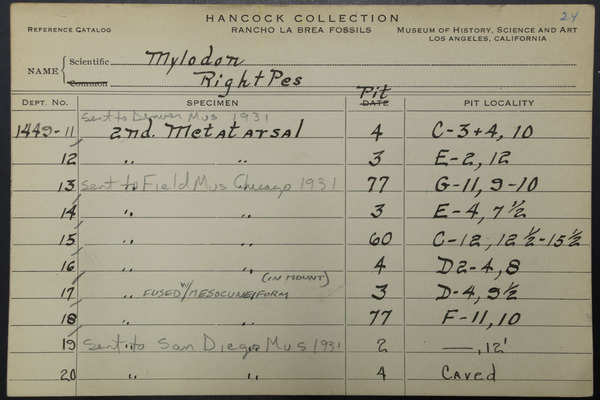 HANCOCK COLLECTION
24
REFERENCE CATALOG RANCHO LA BREA FOSSILS MUSEUM OF HISTORY, SCIENCE AND ART
LOS ANGELES, CALIFORNIA
NAME Scientific Mylodon
Common Right Pes
Pit
DEPT. NO. SPECIMEN DATE PIT LOCALITY
Sent to Denver Mus 1931
1449-11 2nd. Metatarsal 4 C-3+4, 10
12 " " 3 E-2, 12
13 Sent to Field Mus Chicago 1931 77 G-11, 9-10
14 " " 3 E-4, 7½
15 " " 60 C-12, 12½-15½
16 " " 4 D2-4, 8
(IN MOUNT)
17 " FUSED W/ MESOCUNEIFORM 3 D-4, 9½
18 " " 77 F-11, 10
19 Sent to San Diego Mus 1931 2 —, 12'
20 " " 4 Caved